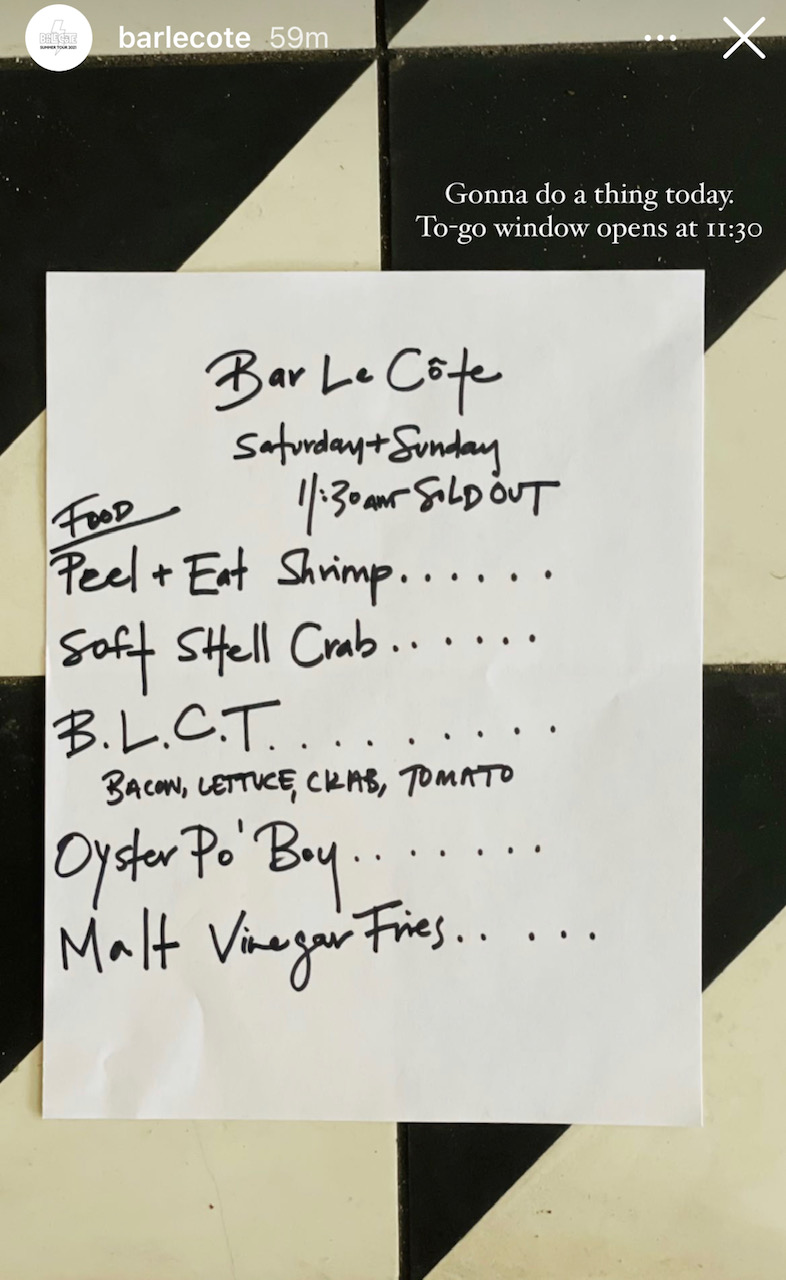 BAR LE CÔTE
SUMMER TOUR 2021
barlecote 59m
Gonna do a thing today.
To-go window opens at 11:30
Bar Le Côte
Saturday + Sunday
11:30am SOLD OUT
FOOD
Peel + Eat Shrimp......
Soft Shell Crab......
B.L.C.T..........
BACON, LETTUCE, CRAB, TOMATO
Oyster Po' Boy.......
Malt Vinegar Fries.....